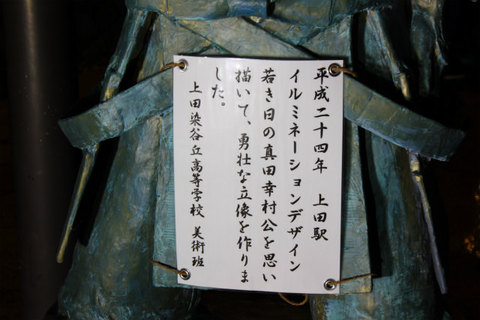 平成二十四年　上田駅
イルミネーションデザイン
若き日の真田幸村公を思い
描いて、勇壮な立像を作りま
した。
上田染谷丘高等学校　美術班